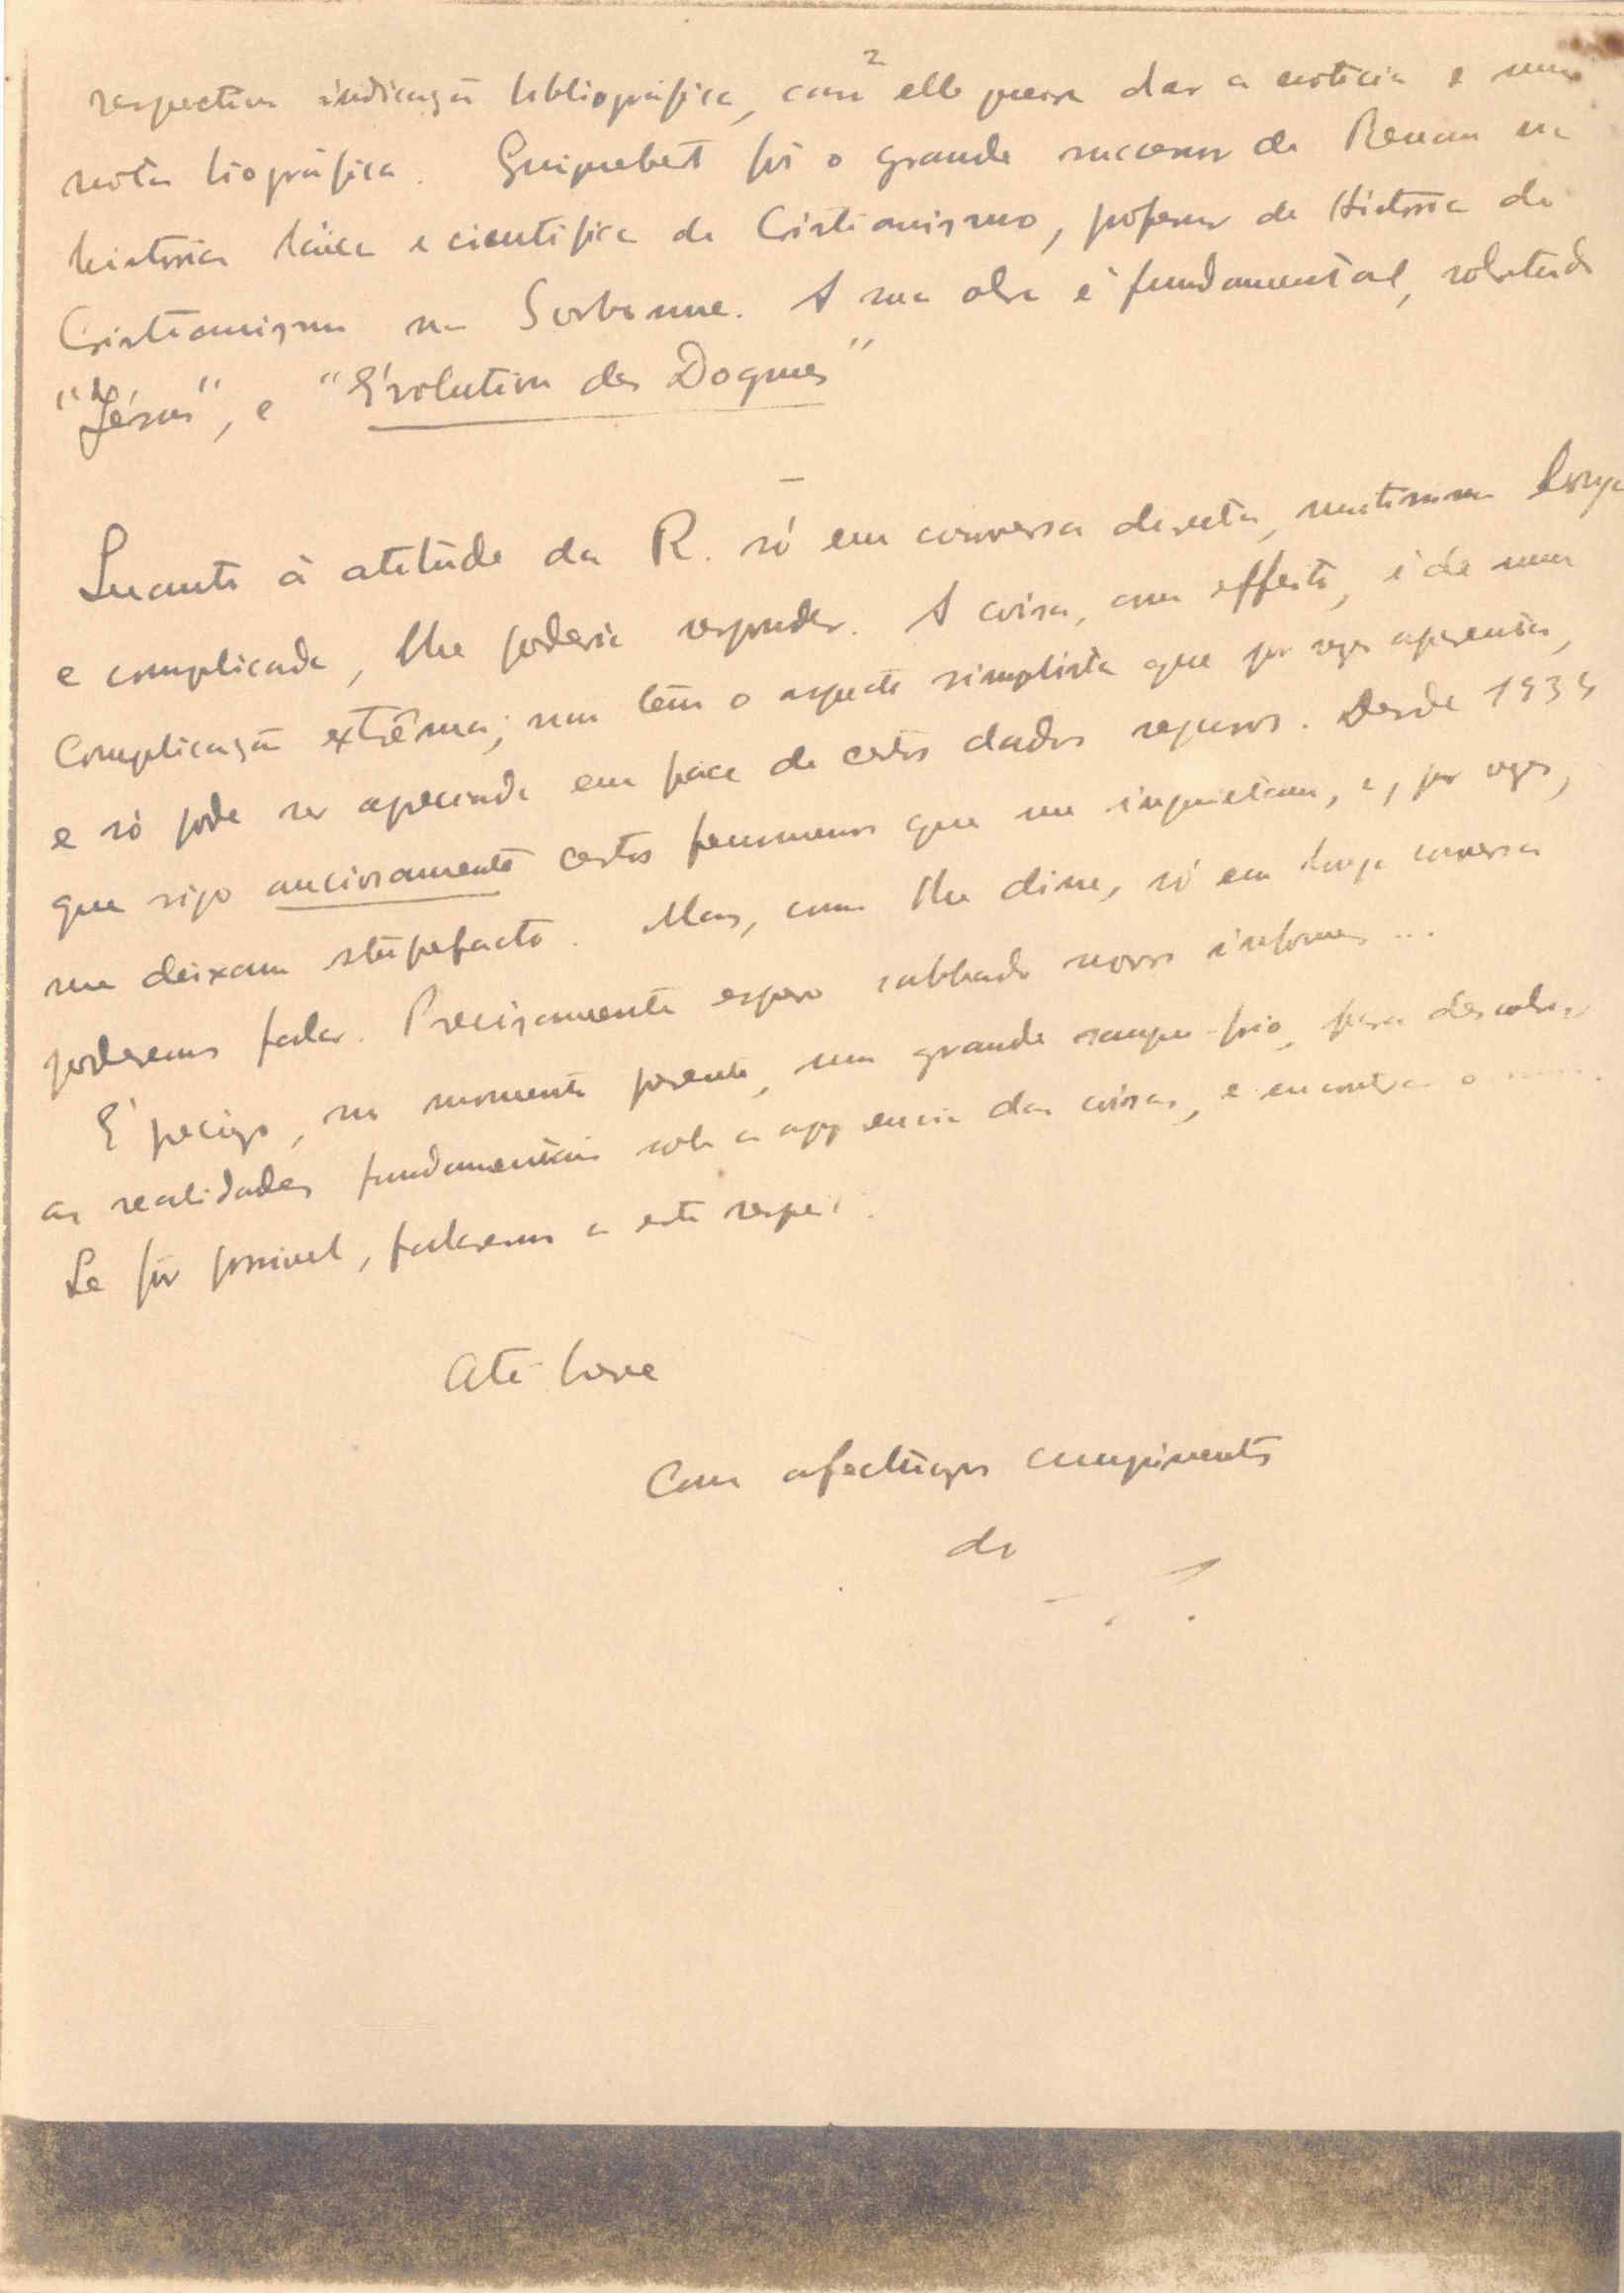 2
respectiva indicação bibliográfica, caso elle possa dar a notícia e uma
nota biográfica. Guignebert foi o grande sucessor de Renan na
história laica e científica do Cristianismo, professor de História do
Cristianismo na Sorbonne. A sua obra é fundamental, sobretudo
"Jésus", e "Évolution des Dogmes"
Quanto à atitude da R. só em conversa directa, muitissimo longa
e complicada, lhe poderia responder. A coisa, com effeito, é de uma
complicação extrêma; não têm o aspecto simplista que por vezes aparenta,
e só pode ser apreciada em face de certos dados seguros. Desde 1939
que sigo anciosamente certos fenomenos que me inquietam, e, por vezes,
me deixam stupefacto. Mas, como lhe disse, só em longa conversa
poderemos falar. Precisamente espero sabbado novos informes ...
É preciso, no momento presente, um grande sangue-frio, para descobrir
as realidades fundamentais sob a apparencia das coisas, e encontrar o
Se fôr possivel, falaremos a este respeito.
Até breve
Com afectuosos cumprimentos
do